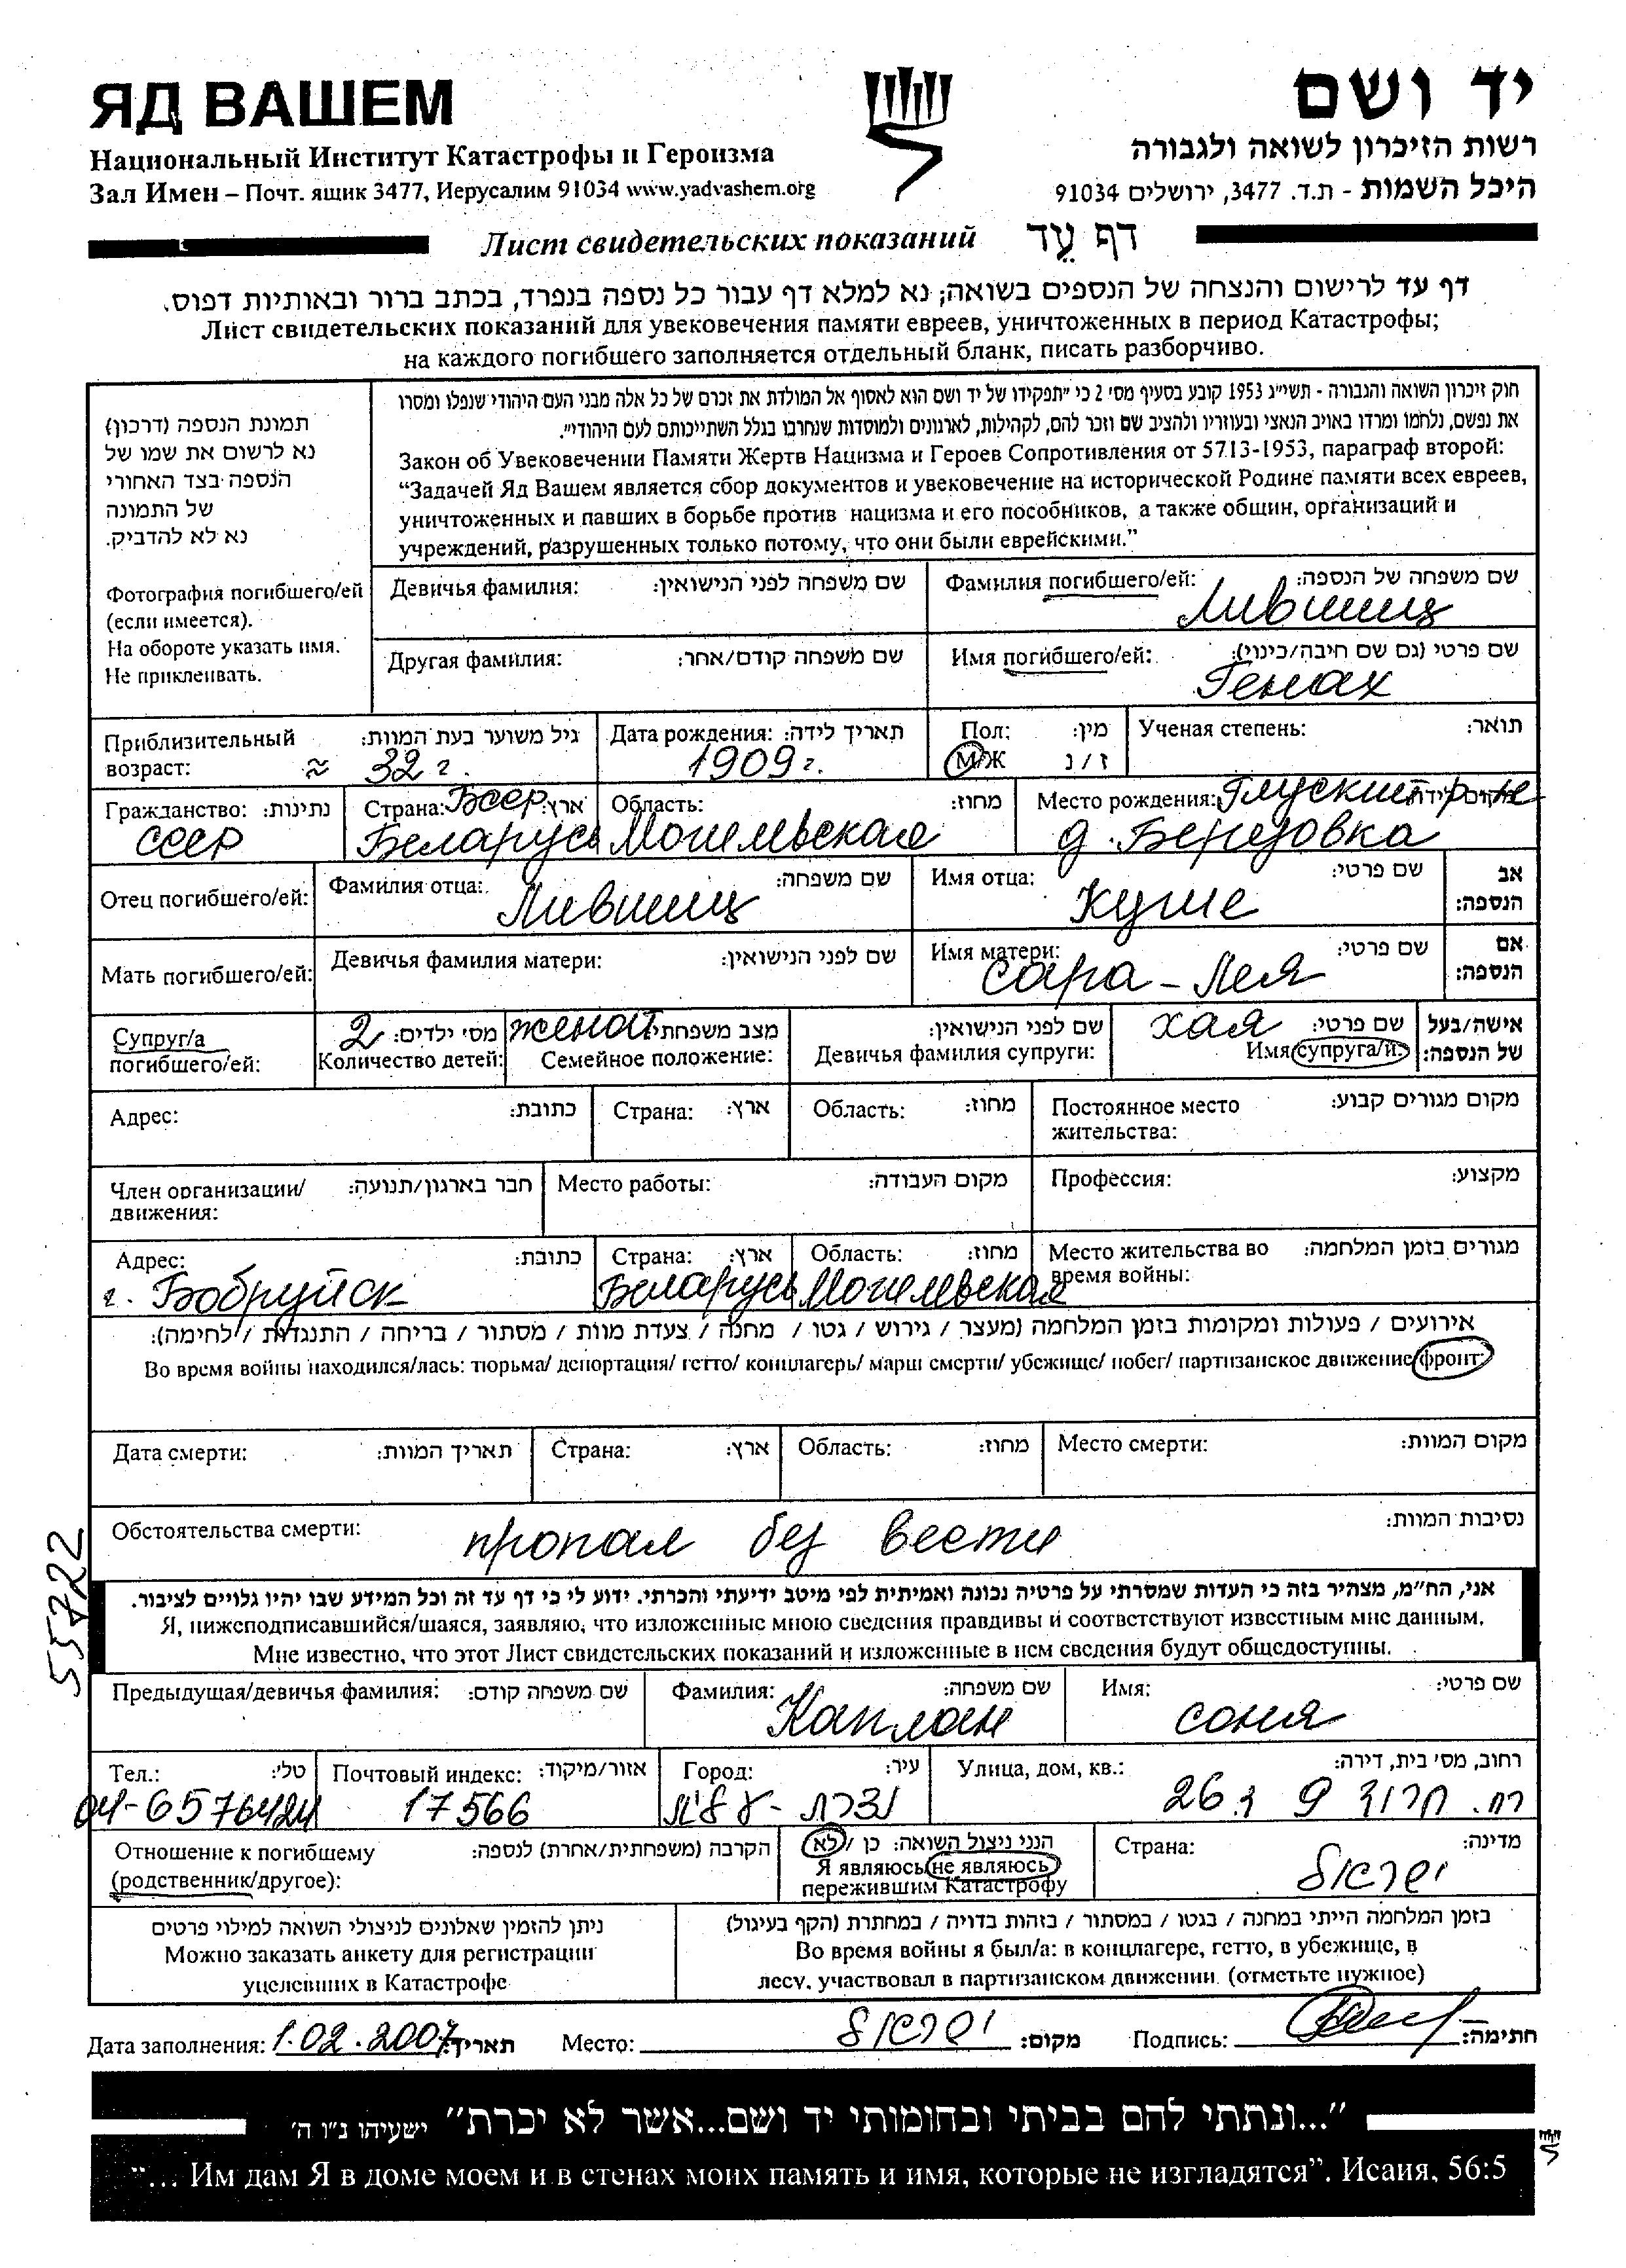 ЯД ВАШЕМ
יד ושם
Национальный Институт Катастрофы и Героизма
רשות הזיכרון לשואה ולגבורה
Зал Имен – Почт. ящик 3477, Иерусалим 91034 www.yadvashem.org
היכל השמות - ת.ד. 3477, ירושלים 91034
Лист свидетельских показаний דף עֵד
דף עד לרישום והנצחה של הנספים בשואה; נא למלא דף עבור כל נספה בנפרד, בכתב ברור ובאותיות דפוס.
Лист свидетельских показаний для увековечения памяти евреев, уничтоженных в период Катастрофы;
на каждого погибшего заполняется отдельный бланк, писать разборчиво.
תמונת הנספה (דרכון)
נא לרשום את שמו של
הנספה בצד האחורי
של התמונה
נא לא להדביק.
Фотография погибшего/ей
(если имеется).
На обороте указать имя.
Не приклеивать.
חוק זיכרון השואה והגבורה - תשי"ג 1953 קובע בסעיף מס' 2 כי "תפקידו של יד ושם הוא לאסוף אל המולדת את זכרם של כל אלה מבני העם היהודי שנפלו ומסרו
את נפשם, נלחמו ומרדו באויב הנאצי ובעוזריו ולהציב שם וזכר להם, לקהילות, לארגונים ולמוסדות שנחרבו בגלל השתייכותם לעם היהודי".
Закон об Увековечении Памяти Жертв Нацизма и Героев Сопротивления от 5713-1953, параграф второй:
“Задачей Яд Вашем является сбор документов и увековечение на исторической Родине памяти всех евреев,
уничтоженных и павших в борьбе против нацизма и его пособников, а также общин, организаций и
учреждений, разрушенных только потому, что они были еврейскими.”
Девичья фамилия: שם משפחה לפני הנישואין:
Фамилия погибшего/ей: שם משפחה של הנספה:
Лившиц
Другая фамилия: שם משפחה קודם/אחר:
Имя погибшего/ей: שם פרטי (גם שם חיבה/כינוי):
Генах
Приблизительный возраст: גיל משוער בעת המוות:
≈ 32 г.
Дата рождения: תאריך לידה:
1909 г.
Пол: מין:
М/Ж ז/נ
Ученая степень: תואר:
Гражданство: נתינות:
СССР
Страна: ארץ:
БССР
Беларусь
Область: מחוז:
Могилевская
Место рождения:
Глуский р-н
д. Березовка
Отец погибшего/ей:
Фамилия отца: שם משפחה:
Лившиц
Имя отца: שם פרטי:
Куше
אב הנספה:
Мать погибшего/ей:
Девичья фамилия матери: שם לפני הנישואין:
Имя матери: שם פרטי:
Сара - Лея
אם הנספה:
Супруг/а погибшего/ей:
2 מס' ילדים:
Количество детей:
женат מצב משפחתי:
Семейное положение:
שם לפני הנישואין:
Девичья фамилия супруги:
Хая שם פרטי:
Имя супруга/и:
אישה/בעל של הנספה:
Адрес: כתובת:
Страна: ארץ:
Область: מחוז:
Постоянное место жительства: מקום מגורים קבוע:
Член организации/движения: חבר בארגון/תנועה:
Место работы: מקום העבודה:
Профессия: מקצוע:
Адрес: כתובת:
г. Бобруйск
Страна: ארץ:
Беларусь
Область: מחוז:
Могилевская
Место жительства во время войны: מגורים בזמן המלחמה:
אירועים / פעולות ומקומות בזמן המלחמה (מעצר / גירוש / גטו / מחנה / צעדת מוות / מסתור / בריחה / התנגדות / לחימה):
Во время войны находился/лась: тюрьма/ депортация/ гетто/ концлагерь/ марш смерти/ убежище/ побег/ партизанское движение/фронт:
Дата смерти: תאריך המוות:
Страна: ארץ:
Область: מחוז:
Место смерти: מקום המוות:
Обстоятельства смерти: נסיבות המוות:
пропал без вести
55722
אני, הח"מ, מצהיר בזה כי העדות שמסרתי על פרטיה נכונה ואמיתית לפי מיטב ידיעתי והכרתי. ידוע לי כי דף עד זה וכל המידע שבו יהיו גלויים לציבור.
Я, нижеподписавшийся/шаяся, заявляю, что изложенные мною сведения правдивы и соответствуют известным мне данным.
Мне известно, что этот Лист свидетельских показаний и изложенные в нем сведения будут общедоступны.
Предыдущая/девичья фамилия: שם משפחה קודם:
Фамилия: שם משפחה:
Каплан
Имя: שם פרטי:
Соня
Тел.: טל':
04-6576424
Почтовый индекс: אזור/מיקוד:
17566
Город: עיר:
נצרת - עלית
Улица, дом, кв.: רחוב, מס' בית, דירה:
רח. חרוד 9 ד. 26
Отношение к погибшему הקרבה (משפחתית/אחרת) לנספה:
(родственник/другое):
הנני ניצול השואה: כן / לא
Я являюсь/не являюсь
пережившим Катастрофу
Страна: מדינה:
ישראל
ניתן להזמין שאלונים לניצולי השואה למילוי פרטים
Можно заказать анкету для регистрации
уцелевших в Катастрофе
בזמן המלחמה הייתי במחנה / בגטו / במסתור / בזהות בדויה / במחתרת (הקף בעיגול)
Во время войны я был/а: в концлагере, гетто, в убежище, в
лесу, участвовал в партизанском движении (отметьте нужное)
Дата заполнения: 1.02.2007 תאריך:
Место: ישראל מקום:
Подпись: חתימה:
"...ונתתי להם בביתי ובחומותי יד ושם...אשר לא יכרת" ישעיהו נ"ו ה'
“... Им дам Я в доме моем и в стенах моих память и имя, которые не изгладятся”. Исаия, 56:5